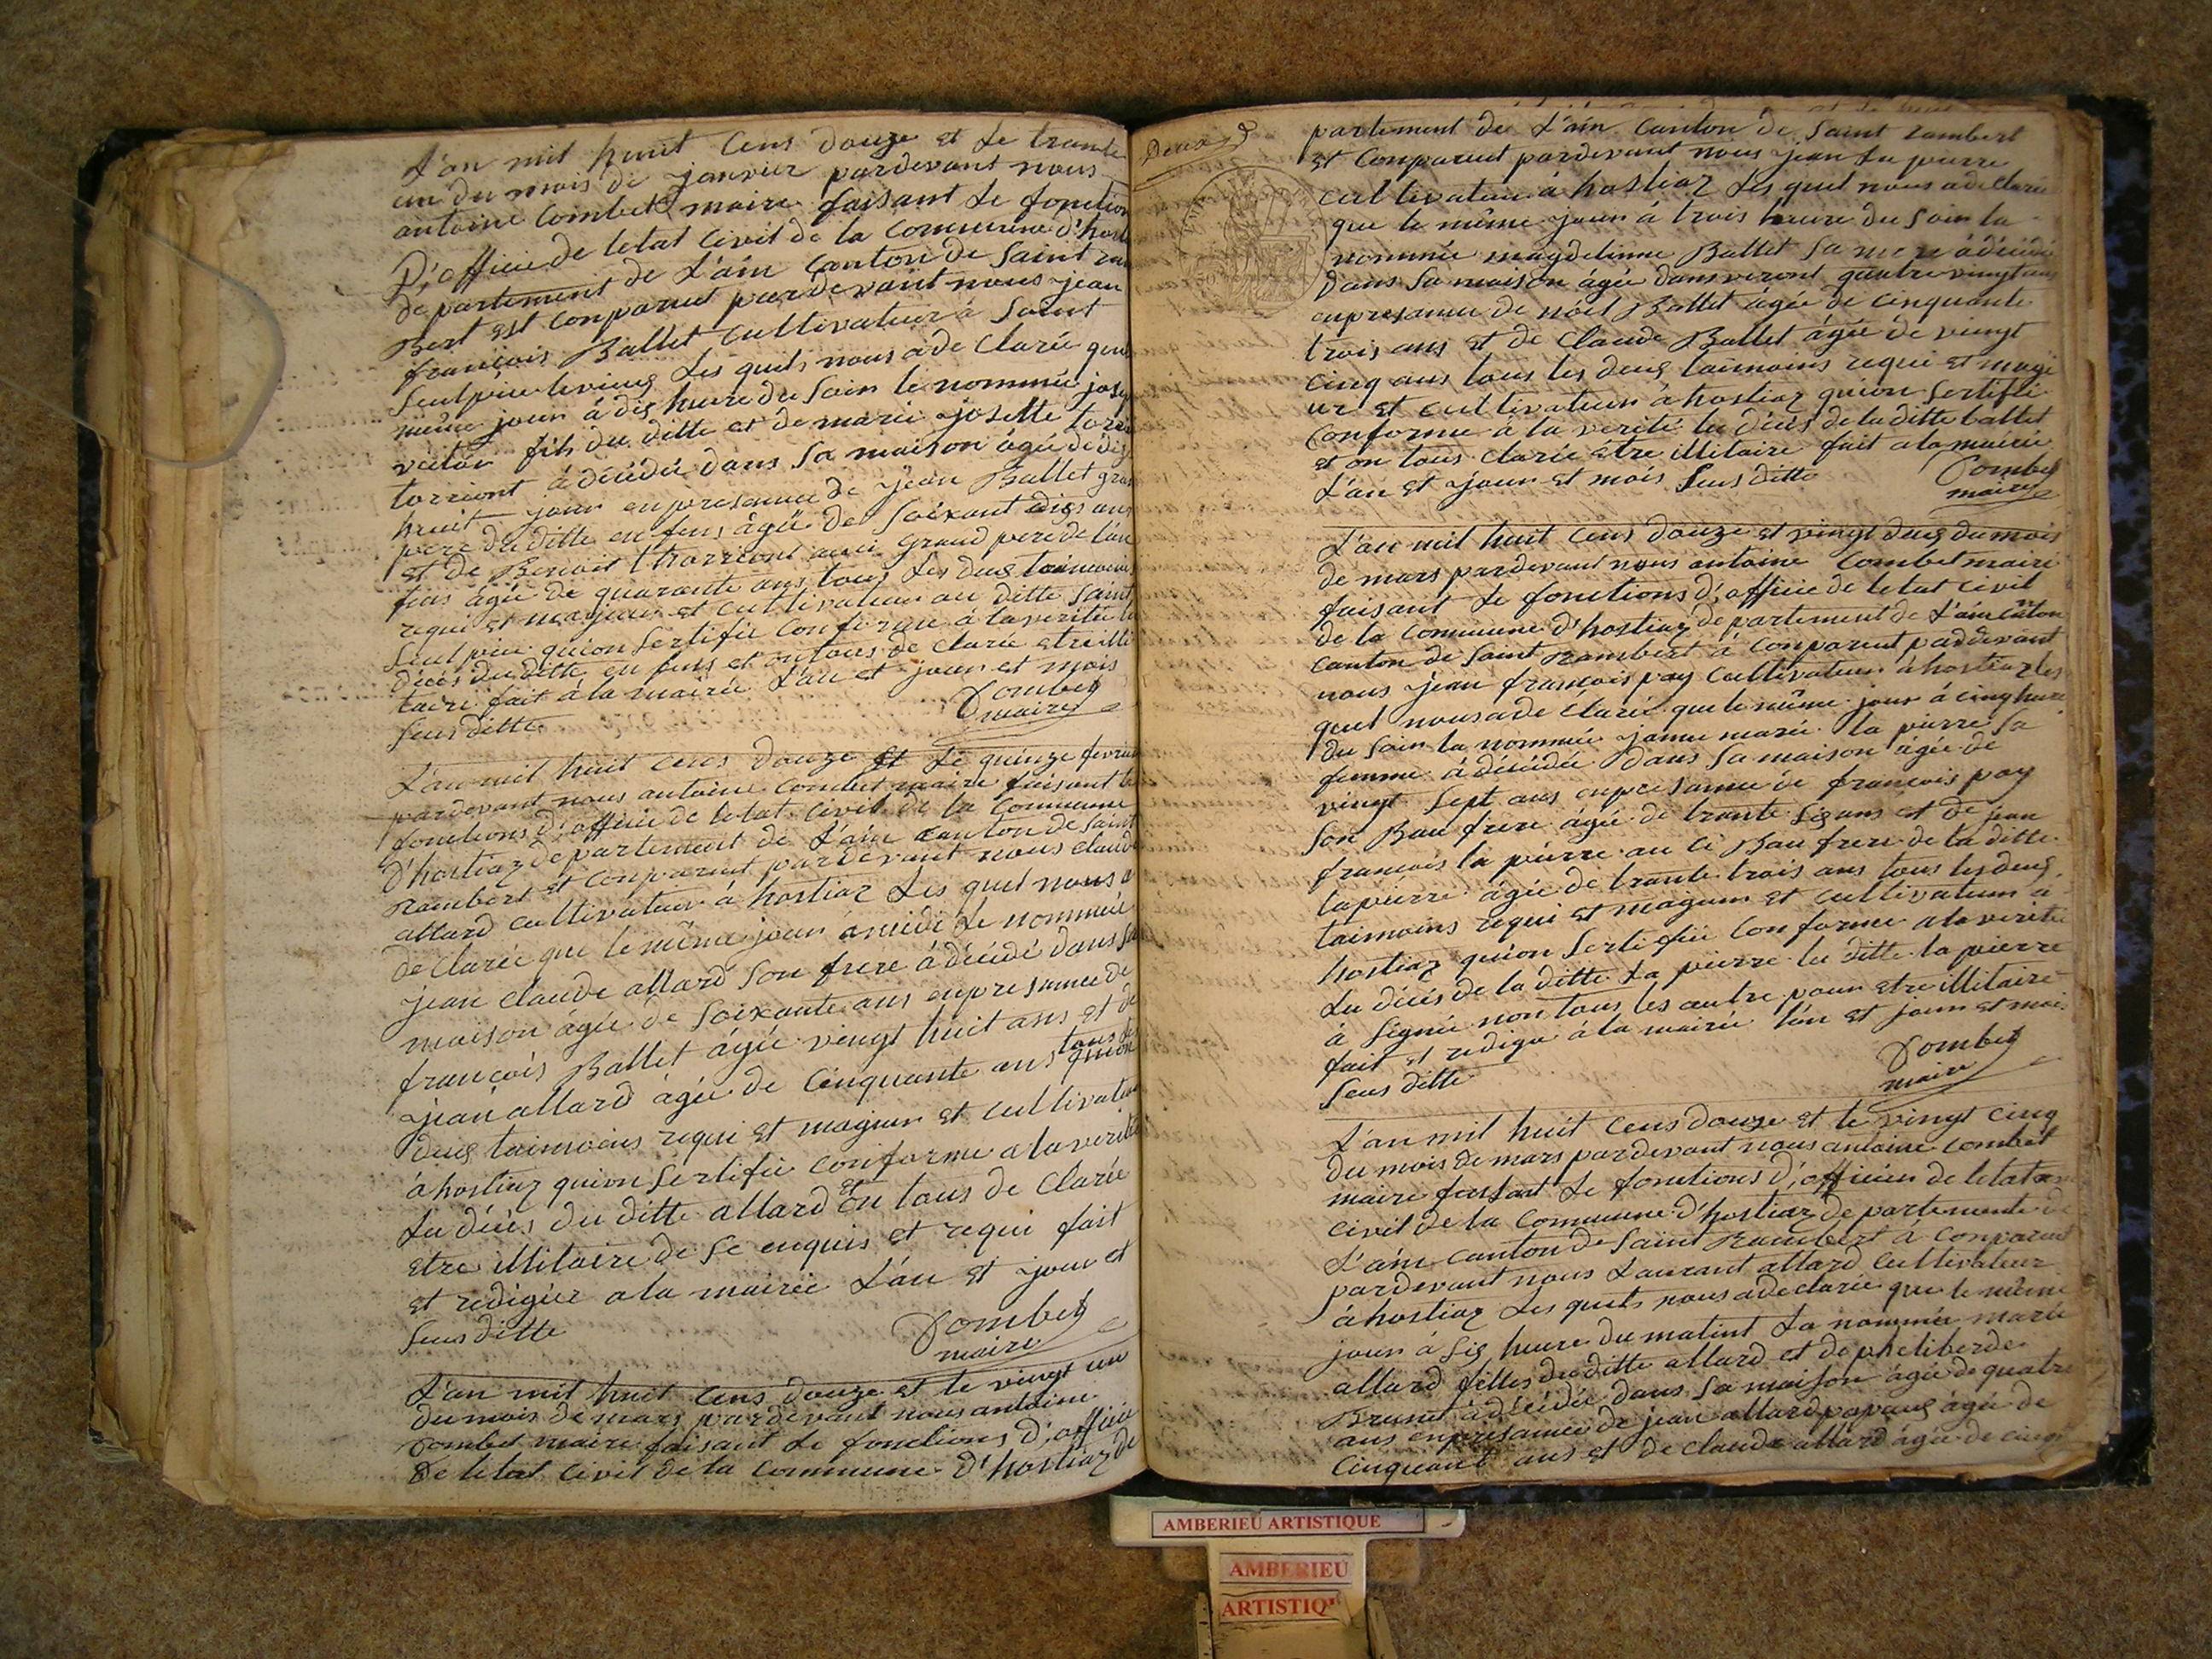 L'an mil huit Cens douze et Le trante
un du mois de janvier pardevant nous
antoine Combet maire faisant Le fonction
D'officie de letat Civil de la Commune d'hos
departement de L'ain Canton de Saint ram
Bert est Conparut pardevant nous jean
francois Ballet Cultivateur à Saint
Seulpice Les quels nous a de Clarée que
même jour à dis heure du Soir le nommée jose
fils du ditte et de marie josette
torriont à décédée dans Sa maison âgée de dis
huit jour en presance de jean Ballet gran
pere du ditte en fens âgée de Soixant e dis ans
et de Benoit thorriont auci grand pere de L'an
fens âgée de quarante ans tous Les deus taimoins
requi et majeur et Cultivateur au ditte Saint
Seulpice qui on Sertifie Conforme à la verité le
décés du ditte en fens et on tous de Clarée etre illi
taire fait à la mairie L'an et jour et mois
Seus ditte
Combet
maire
L'an mil huit cens douze et Le quinze fevrier
pardevant nous antoine Combet maire faisant le
fonctions d'officie de letat Civil de la Commune
d'hostiaz departement de L'ain Canton de Saint
Rambert et Conparut pardevant nous claude
allard cultivateur à hostiaz Les quel nous a
de Clarée que le même jour à midi Le nommée
jean claude allard Son frere à décédé dans Sa
maison âgée de Soixante ans en presance de
francois Ballet âgée vingt huit ans et de
jean allard âgée de Cinquante ans tous les
deus taimoins requi et majeur et cultivateur
à hostiaz qui on Sertifie Conforme a la verité
Lu décés du ditte allard et on tous de Clarée
etre illitaire de Se enquis et requi fait
et redigée a la mairie L'an et jour et
Seus ditte
Combet
maire
L'an mil huit cens douze et le vingt un
du mois de mars pardevant nous antoine
Combet maire faisant Le fonctions d'officie
de letat Civil de la Commune d'hostiaz de
Deux
partement de L'ain Canton de Saint rambert
et Conparut pardevant nous jean La pierre
cultivateur à hostiaz Les quel nous a de Clarée
que le même jour à trois heure du Soir la
nommée magdelinne Ballet Sa mere à décédée
dans Sa maison âgée danviront quatre vingt ans
en presance de nöel Ballet âgée de cinquante
trois ans et de Claude Ballet âgée de vingt
cinq ans tous les deus taimoins requi et maje
ur et cultivateur à hostiaz qui on Sertifie
Conforme a la verité lu décés de la ditte ballet
et on tous Clarée etre illitaire fait a la mairie
L'an et jour et mois Seus ditte
Combet
maire
L'an mil huit cens douze et vingt deus du mois
de mars pardevant nous antoine Combet maire
faisant Le fonctions d'officie de letat Civil
de la Commune d'hostiaz departement de L'ain Canton
Canton de Saint Rambert à Conparut pardevant
nous jean francois pay Cultivateur à hostiaz les
quel nous a de Clarée que le même jour à cinq heure
du Soir la nommée janne marie la pierre Sa
femme à décédée dans Sa maison âgée de
vingt Sept ans en presance de francois pay
Son Bau frere âgée de trante Sis ans et de jean
francois la pierre au ci Bau frere de la ditte
lapierre âgée de trante trois ans tous les deus
taimoins requi et majeur et cultivateur à
hostiaz qui on Sertifiée Conforme a la verité
Lu décés de la ditte La pierre le ditte la pierre
à Signée non tous les autre pour etre illitaire
fait et redigée à la mairie L'an et jour et mois
Seus ditte
Combet
maire
L'an mil huit Cens douze et le vingt cinq
du mois de mars pardevant nous antoine Combet
maire faisant Le fonctions D'officier de letat
Civil de la Commune d'hostiaz departemente de
L'ain Canton de Saint Rambert à Conparut
pardevant nous Laurant allard Cultivateur
à hostiaz Les quels nous a de clarée que le même
jour à Sis heure du matint La nommée marie
allard filles du ditte allard et de pheliberde
Brunet à décédée dans Sa maison âgée de quatre
ans en presance de jean allard âgée de
Cinquant ans et de Claude allard âgée de cinq
AMBERIEU ARTISTIQUE
AMBERIEU
ARTISTIQ